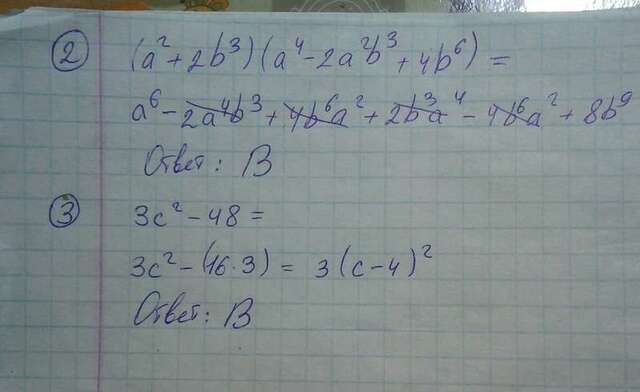 ② (a² + 2b³)(a⁴ - 2a²b³ + 4b⁶) =
a⁶ - 2a⁴b³ + 4b⁶a² + 2b³a⁴ - 4b⁶a² + 8b⁹
Ответ: В
③ 3c² - 48 =
3c² - (16·3) = 3(c - 4)²
Ответ: В